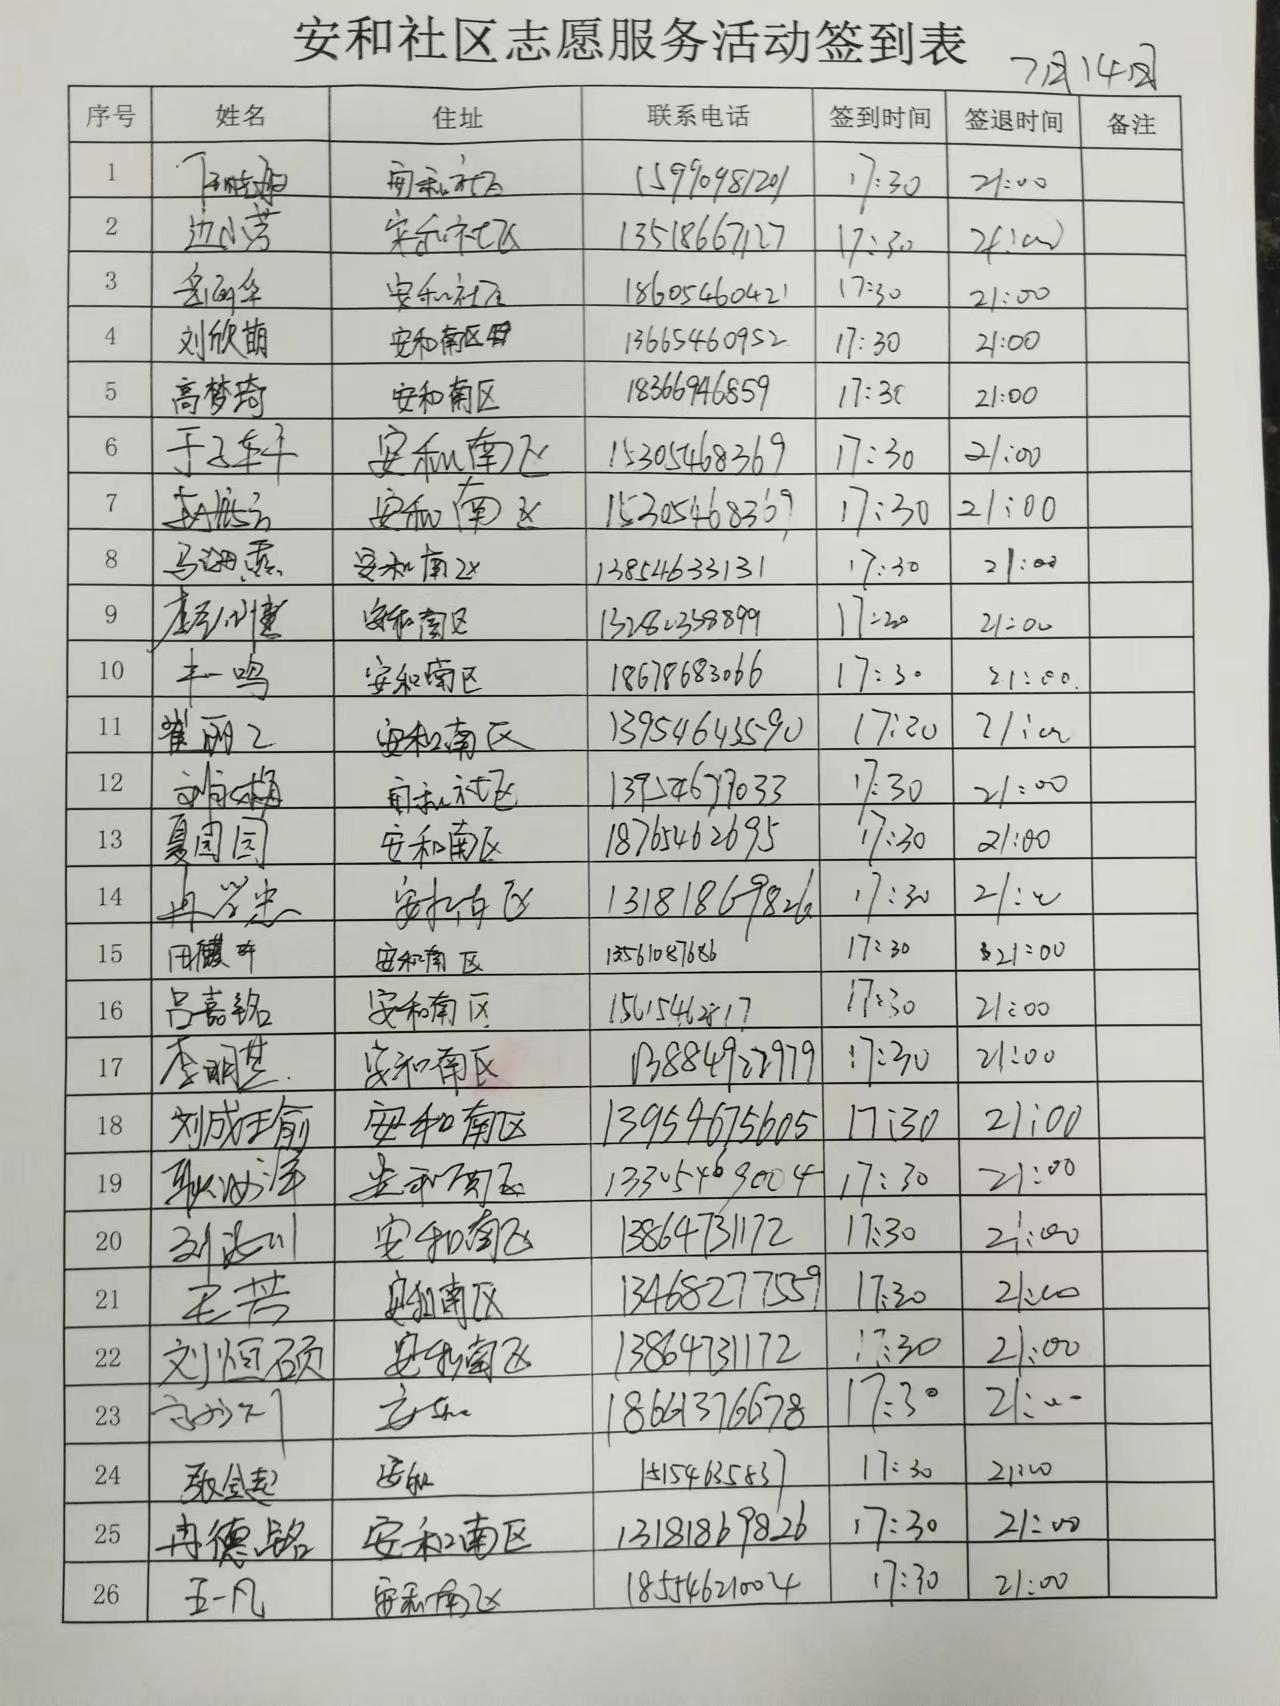 安和社区志愿服务活动签到表
7月14日
序号 姓名 住址 联系电话 签到时间 签退时间 备注
1 安和社区 15990981201 17:30 21:00
2 边小芳 安和社区 13518667127 17:30 21:00
3 岳丽华 安和社区 18605460421 17:30 21:00
4 刘欣萌 安和南区 13665460952 17:30 21:00
5 高梦琦 安和南区 18366946859 17:30 21:00
6 于子轩 安和南区 15305468369 17:30 21:00
7 安和南区 15305468369 17:30 21:00
8 马 安和南区 13854633131 17:30 21:00
9 安和南区 21:00
10 一鸣 安和南区 18678683066 17:30 21:00
11 崔丽 安和南区 13954643590 21:00
12 安和社区 17:30 21:00
13 夏园园 安和南区 18765462695 17:30 21:00
14 冉 区 13181869826 17:30
15 田 安和南区 13561087686 17:30 21:00
16 吕嘉铭 安和南区 17:30 21:00
17 李明 安和南区 17:30 21:00
18 刘成瑜 安和南区 13954675605 17:30 21:00
19 安和南区 13305469004 17:30 21:00
20 刘 安和南区 13864731172 17:30 21:00
21 王芳 安和南区 13468277559 17:30 21:00
22 刘恒硕 安和南区 13864731172 17:30 21:00
23 18661376678 17:30
24 安和 15154635837 17:30 21:00
25 冉德铭 安和南区 13181869826 17:30 21:00
26 王一凡 安和南区 18554621004 17:30 21:00